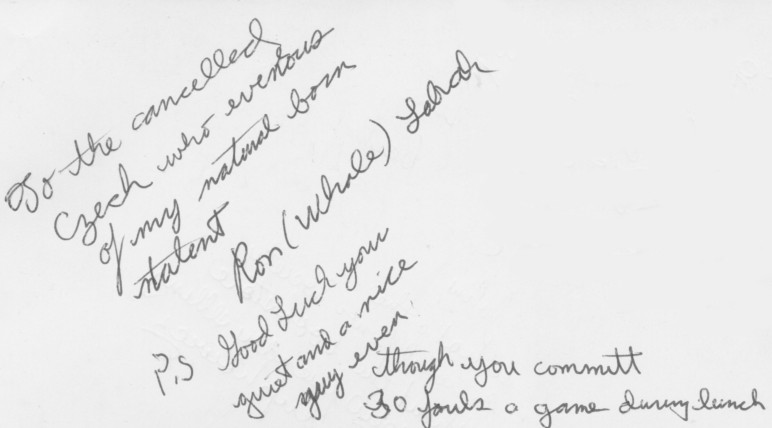 To the cancelled
Czech who evenious
of my natural born
talent
Ron (Whale)
P.S Good Luck your
quiet and a nice
guy even
though you committ
30 fouls a game during lunch